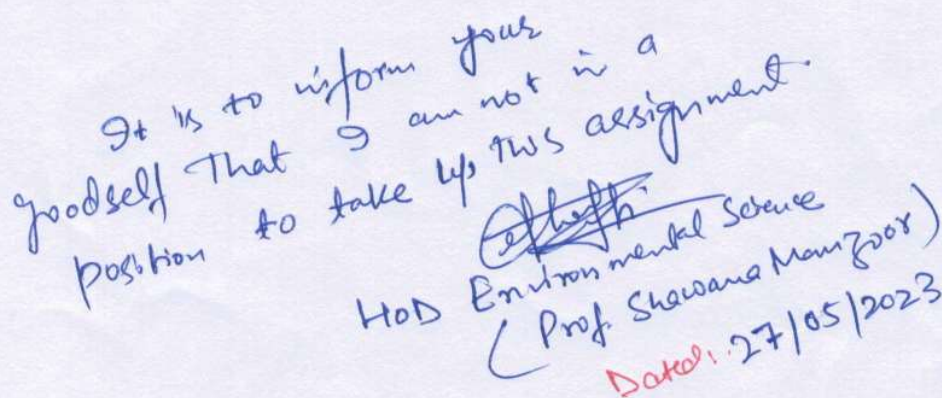 It is to inform your
goodself That I am not in a
position to take up this assignment.
HOD Environmental Science
(Prof. Shawana Manzoor)
Dated:. 27/05/2023